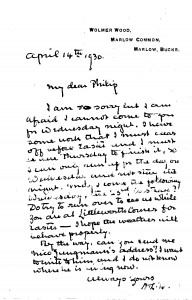 WOLMER WOOD,
MARLOW COMMON,
MARLOW, BUCKS.
April 14th 1930.
My dear Philip
I am so sorry but I am
afraid I cannot come to you
for Wednesday night. I have
some work that I must clear
off before Easter and I must
Thursday to finish it, so
I can only run up for the day on
Wednesday and not stay the
night. And I love the following
Wednesday
Do try to run over to see us while
you are at Littleworth Corner for
Easter — I hope the weather will
behave properly.
By the way, can you send me
Nico Jungmann's address? I want
to write to him and I do not know
where he is living now.
Always yours